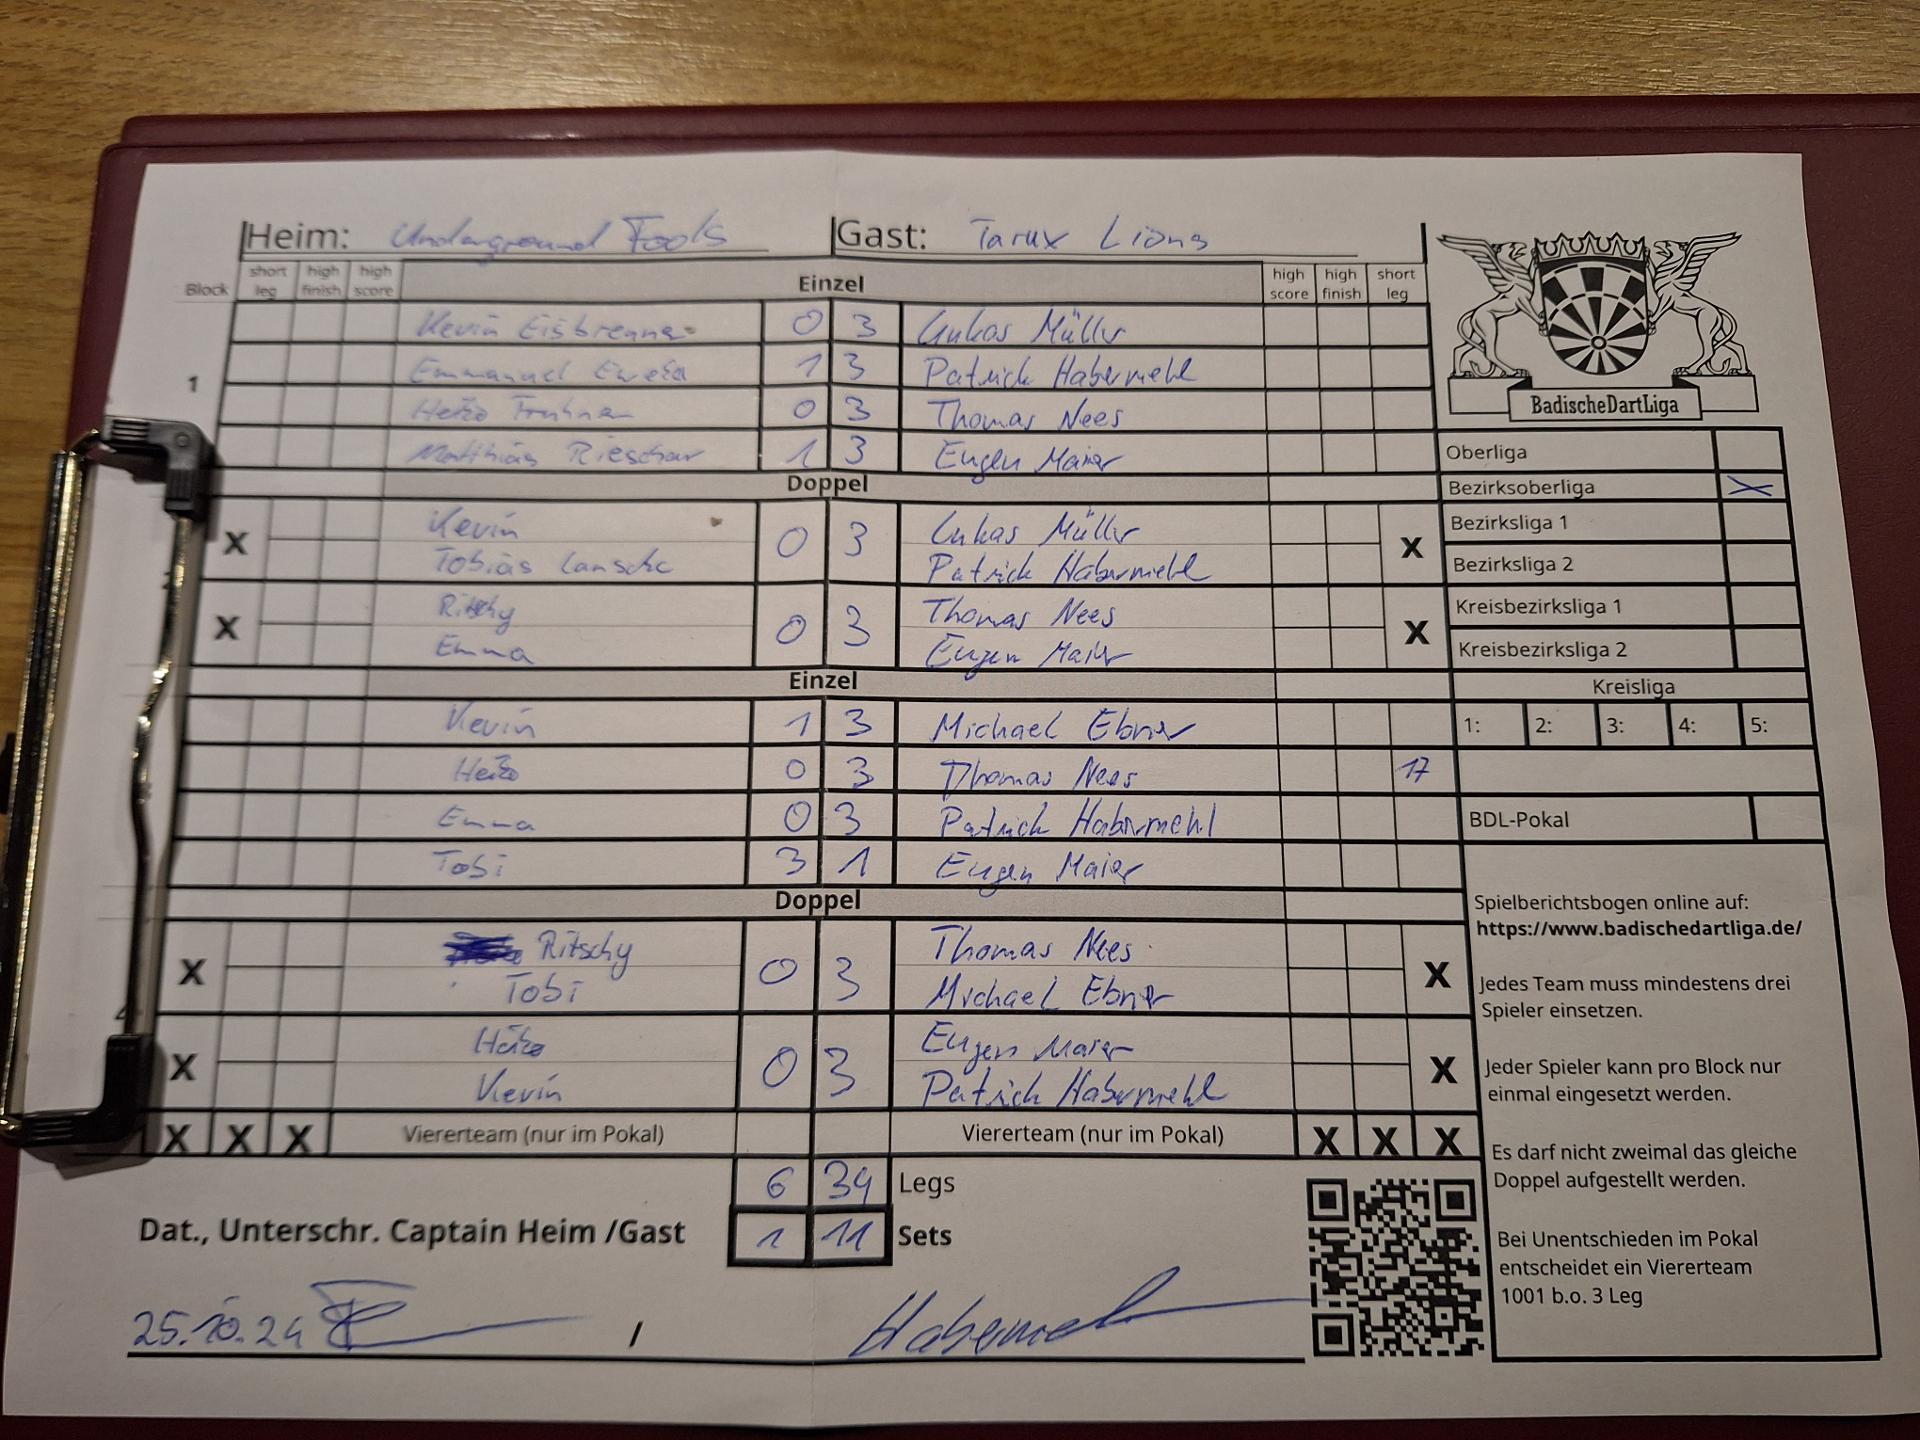 Heim: Underground Fools Gast: Tarux Lions
Block short leg high finish high score Einzel high score high finish short leg
Kevin 0 3 Lukas Müller
1 Emmanuel 1 3 Patrick Habermehl
Heiko 0 3 Thomas Nees
Matthias 1 3 Eugen Maier
Doppel
X Kevin 0 3 Lukas Müller X
Tobias Patrick Habermehl
X Ritschy 0 3 Thomas Nees X
Emma Eugen Maier
Einzel
Kevin 1 3 Michael Ebner
Heiko 0 3 Thomas Nees 17
Emma 0 3 Patrick Habermehl
Tobi 3 1 Eugen Maier
Doppel
X Ritschy 0 3 Thomas Nees X
Tobi Michael Ebner
X Heiko 0 3 Eugen Maier X
Kevin Patrick Habermehl
X X X Viererteam (nur im Pokal) Viererteam (nur im Pokal) X X X
6 34 Legs
1 11 Sets
Dat., Unterschr. Captain Heim /Gast
25.10.24 / Habermehl
BadischeDartLiga
Oberliga
Bezirksoberliga X
Bezirksliga 1
Bezirksliga 2
Kreisbezirksliga 1
Kreisbezirksliga 2
Kreisliga
1: 2: 3: 4: 5:
BDL-Pokal
Spielberichtsbogen online auf:
https://www.badischedartliga.de/
Jedes Team muss mindestens drei
Spieler einsetzen.
Jeder Spieler kann pro Block nur
einmal eingesetzt werden.
Es darf nicht zweimal das gleiche
Doppel aufgestellt werden.
Bei Unentschieden im Pokal
entscheidet ein Viererteam
1001 b.o. 3 Leg